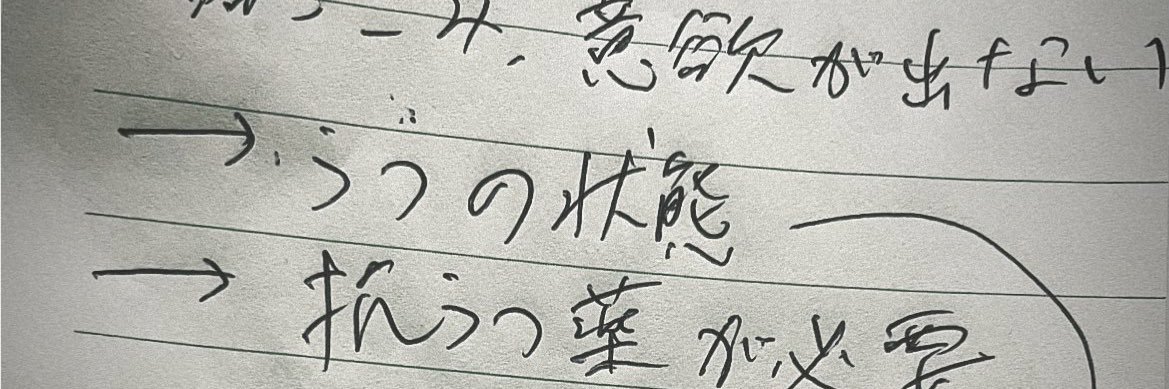 意欲が出ない
→ うつの状態
→ 抗うつ薬が必要